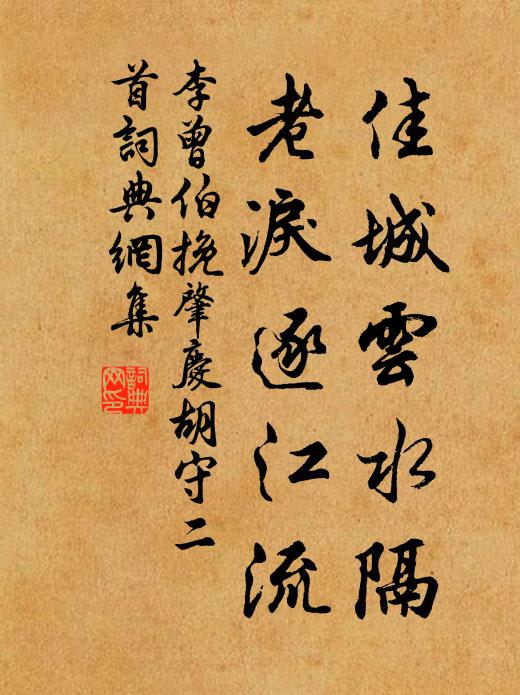 佳城雲水隔
老淚逐江流
李曾伯挽肇慶胡守二
首詞典網集
詞典
网印